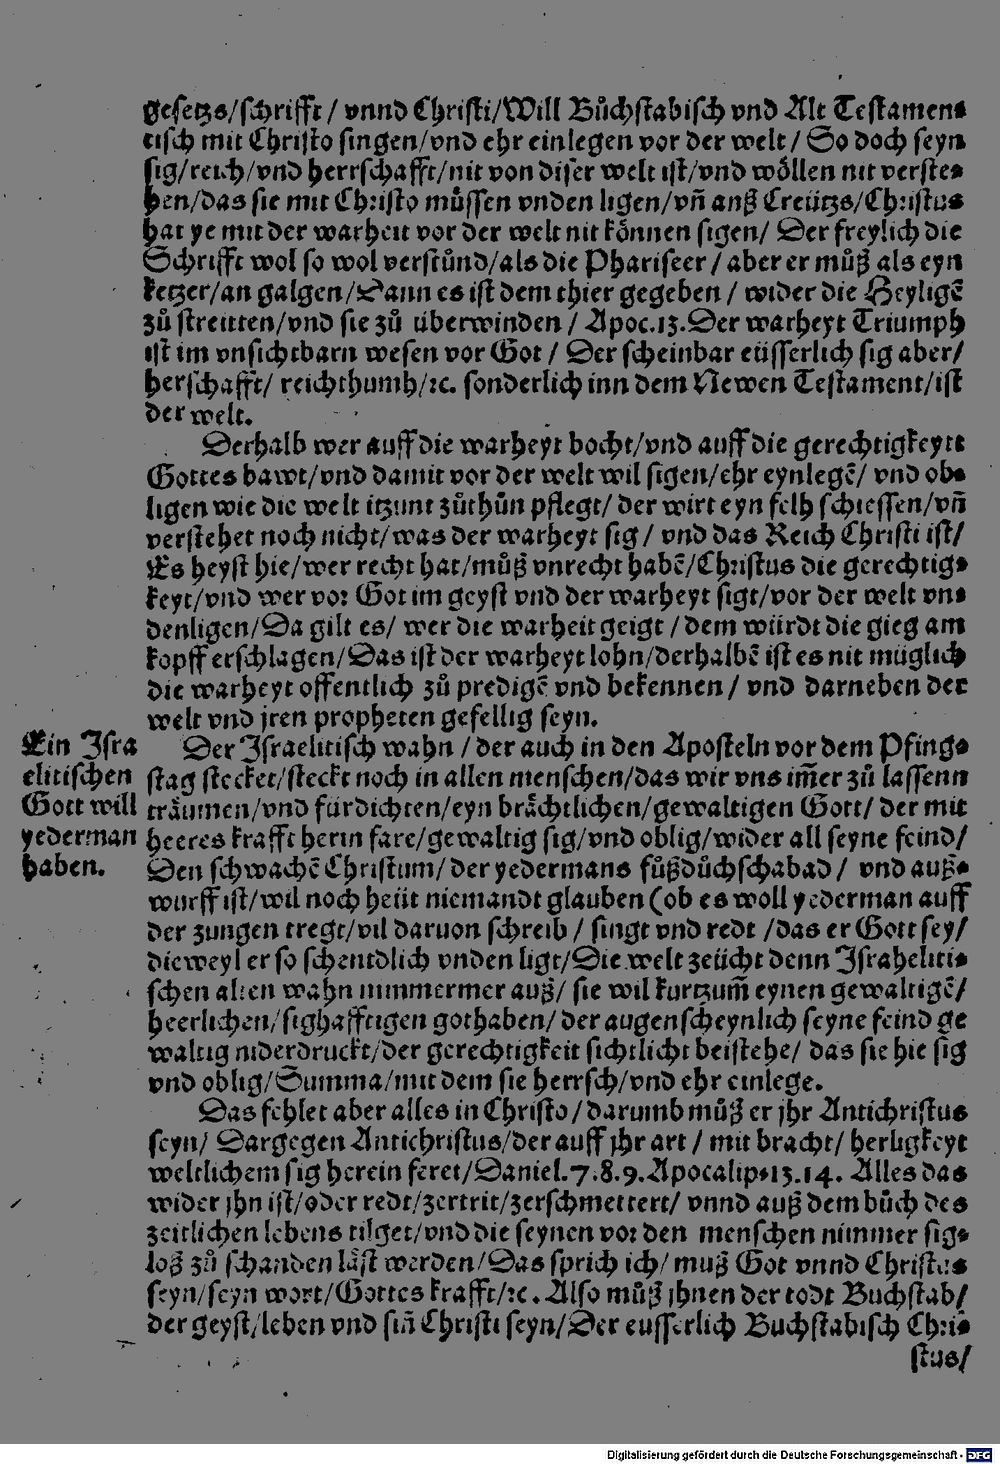 gesetzs/schrifft / vnnd Christi/Will Bůchstabisch vnd Alt Testamen⸗
tisch mit Christo singen/vnd ehr einlegen vor der welt / So doch seyn
sig/reich/vnd herrschafft/nit von diser welt ist/vnd wöllen nit verste⸗
hen/das sie mit Christo můssen vnden ligen/vñ anß Creützs/Christus
hat ye mit der warheit vor der welt nit können sigen/ Der freylich die
Schrifft wol so wol verstůnd/als die Phariseer / aber er můß als eyn
ketzer/an galgen/Dann es ist dem thier gegeben / wider die Heyligẽ
zů streitten/vnd sie zů überwinden / Apoc.13. Der warheyt Triumph
ist im vnsichtbarn wesen vor Got / Der scheinbar eüsserlich sig aber/
herschafft/ reichthumb/ꝛc. sonderlich inn dem Newen Testament/ist
der welt.
Derhalb wer auff die warheyt bocht/vnd auff die gerechtigkeytt
Gottes bawt/vnd damit vor der welt wil sigen/ehr eynlegẽ/ vnd ob⸗
ligen wie die welt itzunt zůthůn pflegt/ der wirt eyn felh schiessen/vñ
verstehet noch nicht/was der warheyt sig / vnd das Reich Christi ist/
Es heyst hie/wer recht hat/můß vnrecht habẽ/Christus die gerechtig⸗
keyt/vnd wer vor Got im geyst vnd der warheyt sigt/vor der welt vn⸗
denligen/Da gilt es/ wer die warheit geigt / dem würdt die gieg am
kopff erschlagen/Das ist der warheyt lohn/derhalbẽ ist es nit müglich
die warheyt offentlich zů predigẽ vnd bekennen / vnd darneben der
welt vnd jren propheten gefellig seyn.
Ein Isra
elitischen
Gott will
yederman
haben.
Der Israelitisch wahn / der auch in den Aposteln vor dem Pfing⸗
stag stecket/steckt noch in allen menschen/das wir vns im̃er zů lassenn
träumen/vnd fürdichten/eyn brächtlichen/gewaltigen Gott/ der mit
heeres krafft herin fare/gewaltig sig/vnd oblig/wider all seyne feind/
Den schwachẽ Christum/der yedermans fůßdůchschabad / vnd auß⸗
wurff ist/wil noch heüt niemandt glauben (ob es woll yederman auff
der zungen tregt/vil daruon schreib / singt vnd redt /das er Gott sey/
dieweyl er so schentdlich vnden ligt/Die welt zeücht denn Israheliti⸗
schen alten wahn nimmermer auß/ sie wil kurtzum̃ eynen gewaltigẽ/
heerlichen/sighafftigen gothaben/ der augenscheynlich seyne feind ge
waltig niderdruckt/der gerechtigkeit sichtlicht beistehe/ das sie hie sig
vnd oblig/Summa/mit dem sie herrsch/vnd ehr einlege.
Das fehlet aber alles in Christo/darumb můß er jhr Antichristus
seyn/ Dargegen Antichristus/der auff jhr art / mit bracht/ herligkeyt
weltlichem sig herein feret/Daniel.7.8.9.Apocalip.13.14. Alles das
wider jhn ist/oder redt/zertrit/zerschmettert/ vnnd auß dem bůch des
zeitlichen lebens tilget/vnd die seynen vor den menschen nimmer sig⸗
loß zů schanden läst werden/Das sprich ich/ muß Got vnnd Christus
seyn/seyn wort/Gottes krafft/ꝛc. Also můß jhnen der todt Buchstab/
der geyst/leben vnd siñ Christi seyn/Der eusserlich Buchstabisch Chri⸗
stus/
Digitalisierung gefördert durch die Deutsche Forschungsgemeinschaft - DFG